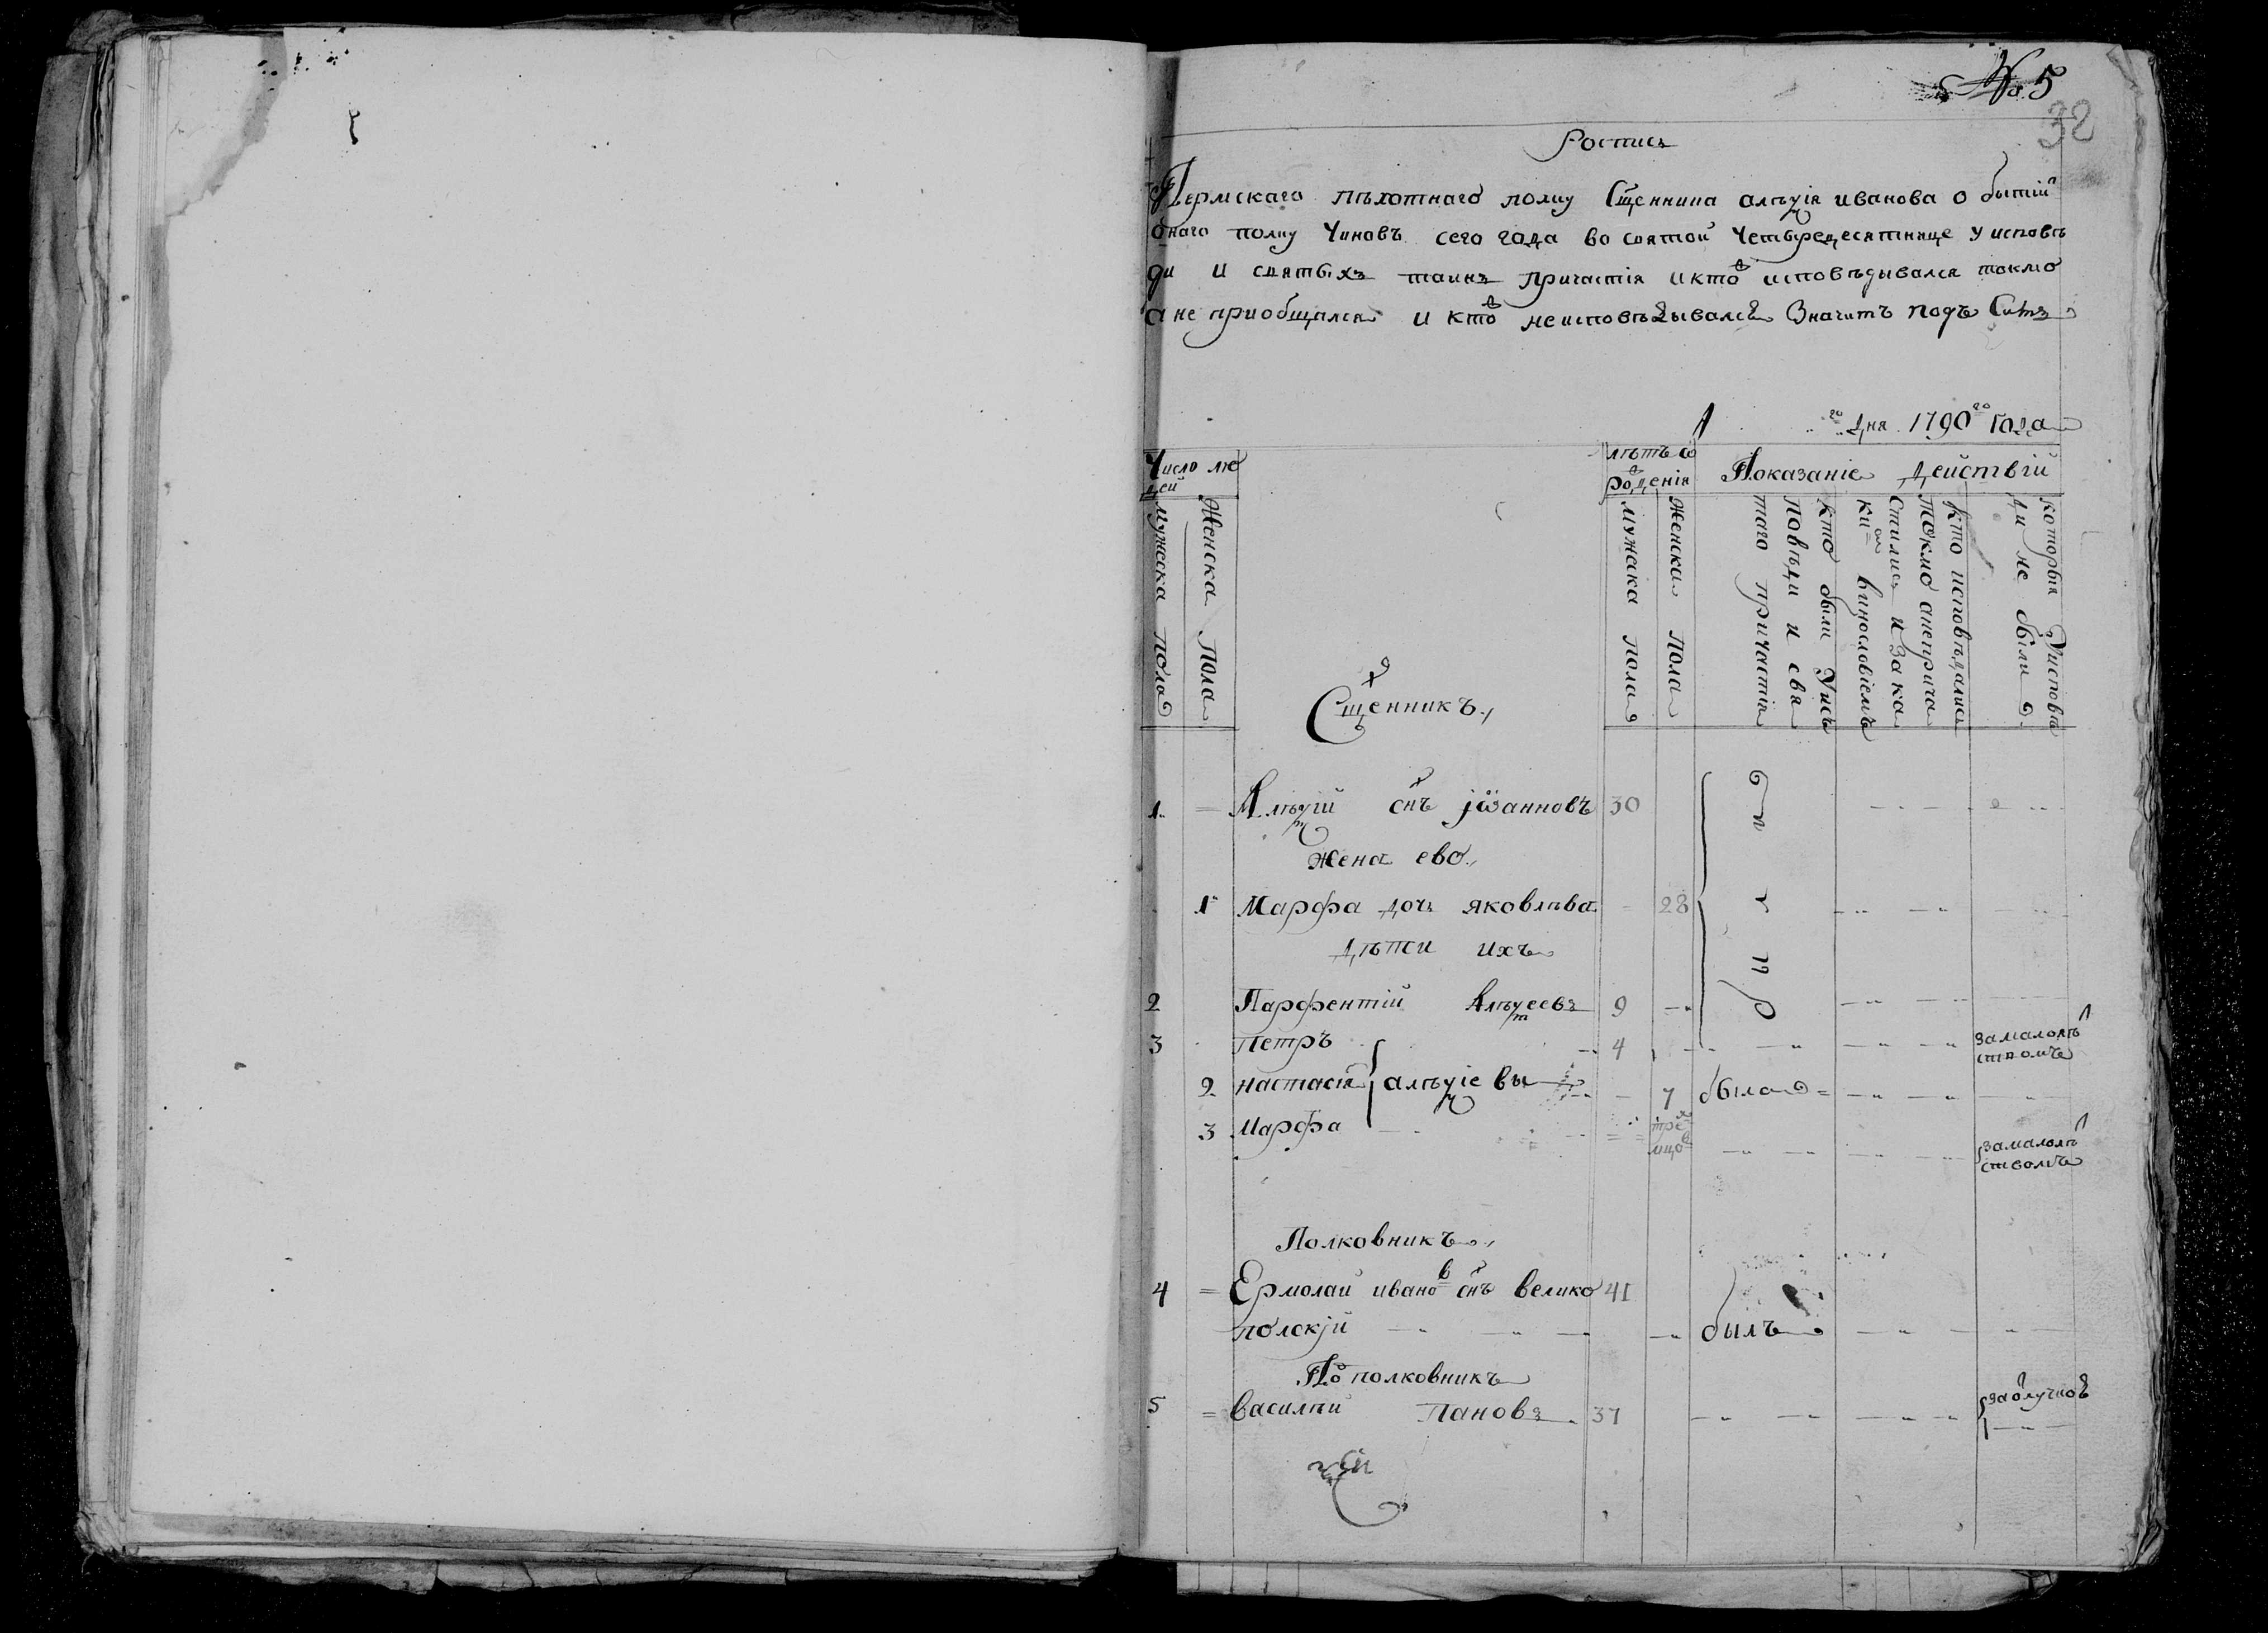 № 5
32
Роспись
Пермскаго пѣхотнаго полку Сщенника алѣѯіа иванова о бытіи
онаго полку Чиновъ сего года во святои Четыредесятнице у исповѣ
ди и святыхъ таинъ причастія и ктоъ исповѣдывался токмо
а не приобщался и ктоъ неисповѣдывался Значитъ подъ Симъ
го дня 1790го Года
Число лю
дей
мужска пола
Женска Пола
Сщенникъ
лѣтъ ѿ
роденія
мужска пола
Женска Пола
Показаніе Действій
кто были Уис
повѣди и свя
таго причастія
кто исповѣдались
токмо анеприча
стились и зака
ки винословіемъ
которыя Уисповѣ
ди не были
1 Алѣѯій снъ іѡанновъ 30
Жена ево
1 Марфа дочь яковлѣва 28
дѣти ихъ
2 Парфентій Алѣѯеевъ 9
были
3 Петръ 4 замалолѣ
ствомъ
2 настасія алѣѯіевы 7 была
3 Марфа
замалолѣ
ствомъ
Полковникъ
4 Ермолаи ивановъ снъ велико 41
полскји былъ
Пополковникъ
5 василѣи Пановъ 37 заолучкоѣ